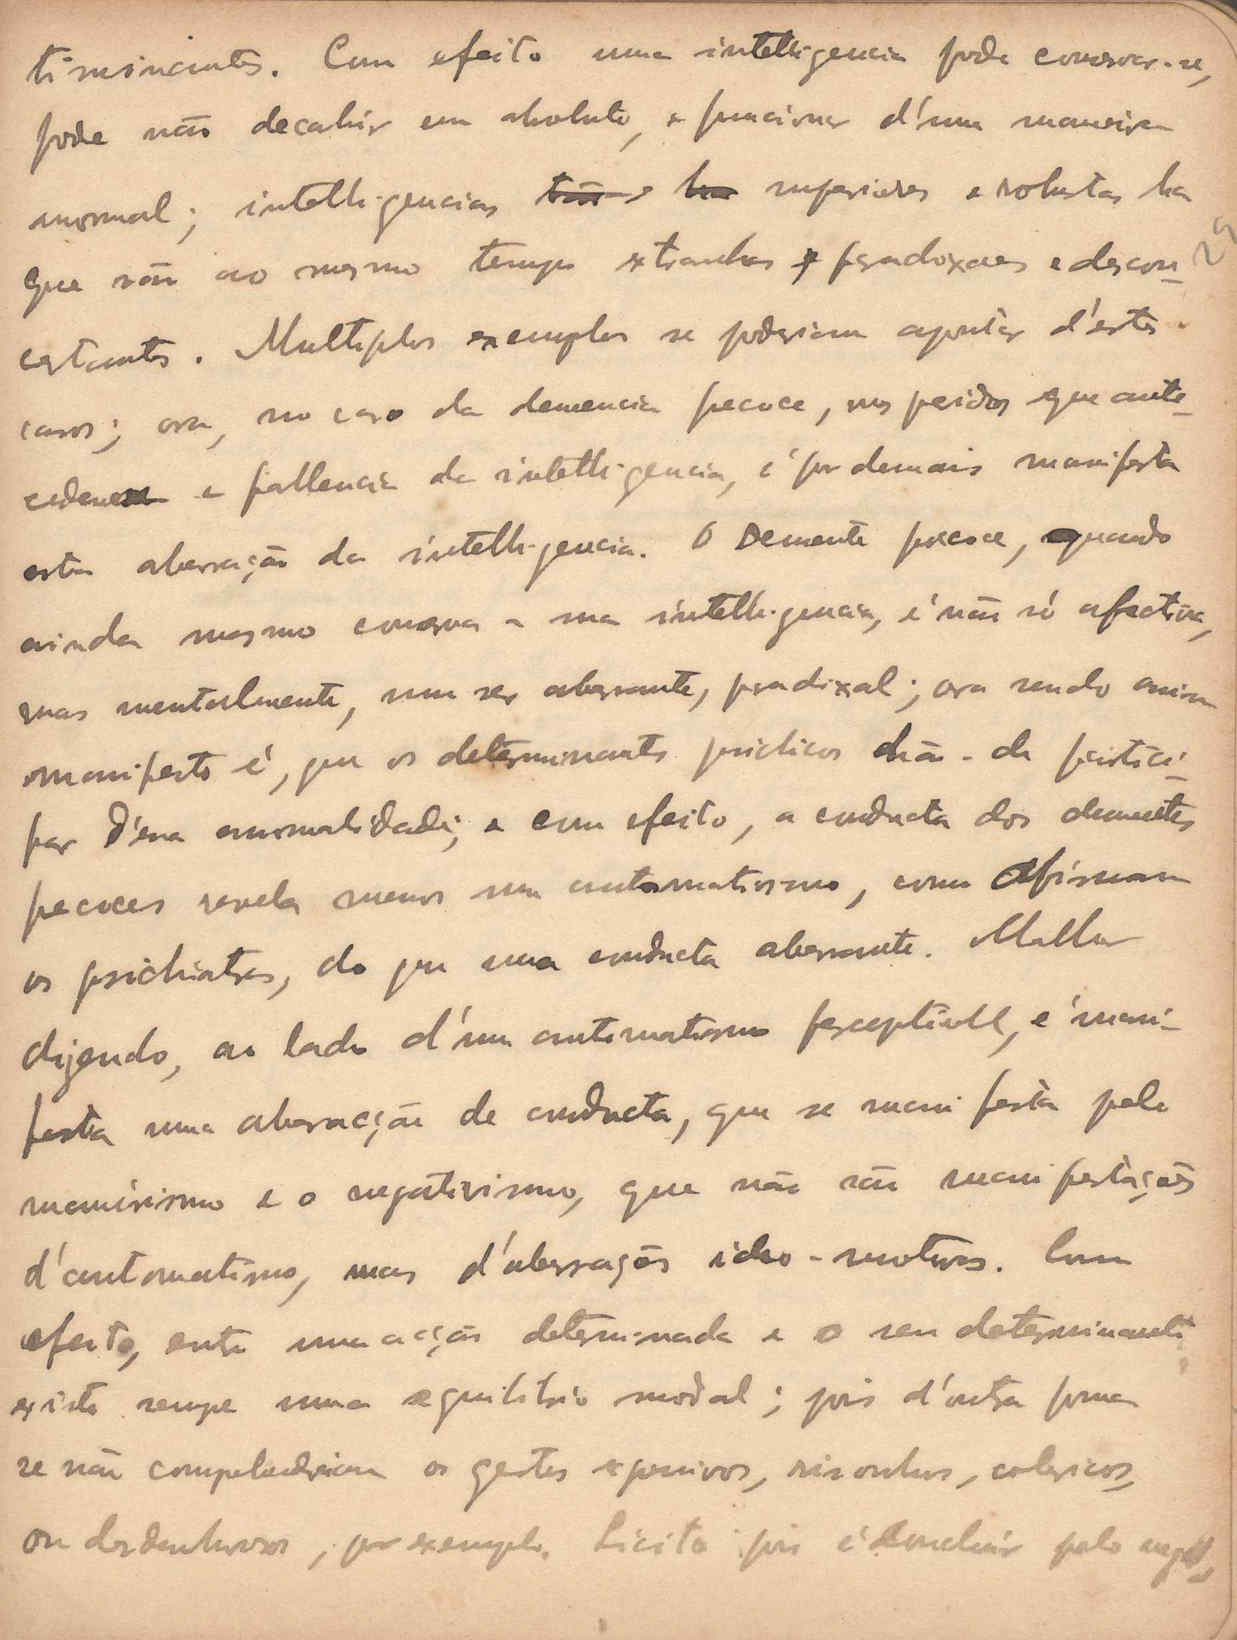 timinantes. Com efeito uma intelligencia pode conservar-se,
pode não decahir em absoluto, e funcionar d'uma maneira
anormal; intelligencias tão e ha superiores e robustas ha
que são ao mesmo tempo extranhas e paradoxaes e descon-
certantes. Multiplos exemplos se poderiam apontar d'estes
casos; ora, no caso da demencia pecoce, nos periodos que ante-
cedem a fallencia da intelligencia, é por demais manifesta
esta aberração da intelligencia. O Demente precoce, quando
ainda mesmo conserva a sua intelligencia, é não só afectiva,
mas mentalmente, um ser aberrante, pradoxal; ora sendo assim
manifesto é, que os determinantes psichicos hão-de partici-
par d'essa anormalidade; e com efeito, a conducta dos dementes
pecoces revela menos um automatismo, como afirmam
os psichiatras, do que uma conducta aberrante. Melhor
dizendo, ao lado d'um automatismo perceptivel, é mani-
festa uma aberração de conducta, que se manifesta pelo
maneirismo e o negativismo, que não são manifestações
d'automatismo, mas d'aberrações ideo-motivas. Com
efeito, entre uma acção determinada e o seu determinante
existe sempe uma equilibrio modal; pois d'outra forma
se não compehenderiam os gestos expansivos, risonhos, colericos,
ou desdenhosos, por exemplo. Licito pois é concluir pelo
29